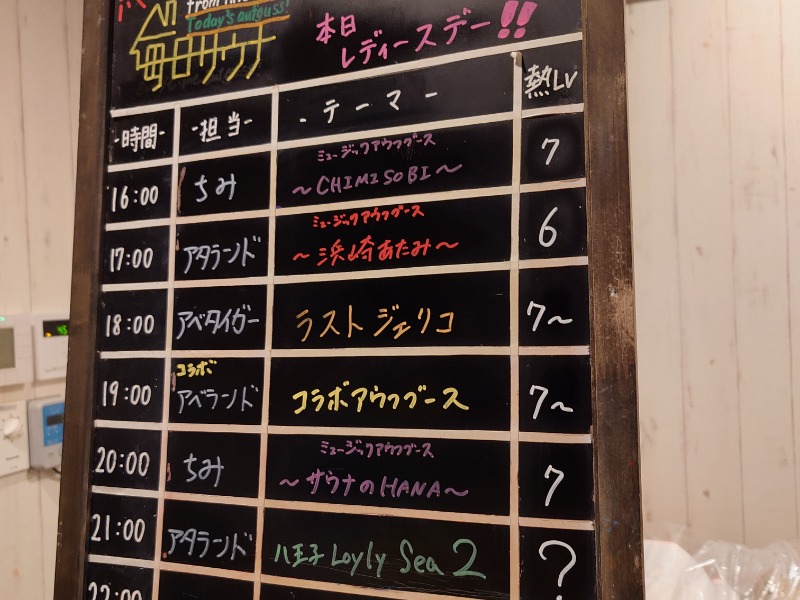 Today's aufguss!
毎日サウナ
本日
レディースデー!!
-時間- -担当- -テーマ- 熱LV
ミュージックアウフグース
16:00 ちみ ～CHIMISOBI～ 7
ミュージックアウフグース
17:00 アタランド ～浜崎あたみ～ 6
18:00 アベタイガー ラストジェリコ 7～
コラボ
19:00 アベランド コラボアウフグース 7～
ミュージックアウフグース
20:00 ちみ ～サウナのHANA～ 7
21:00 アタランド 八王子Loyly Sea 2 ?
22:00